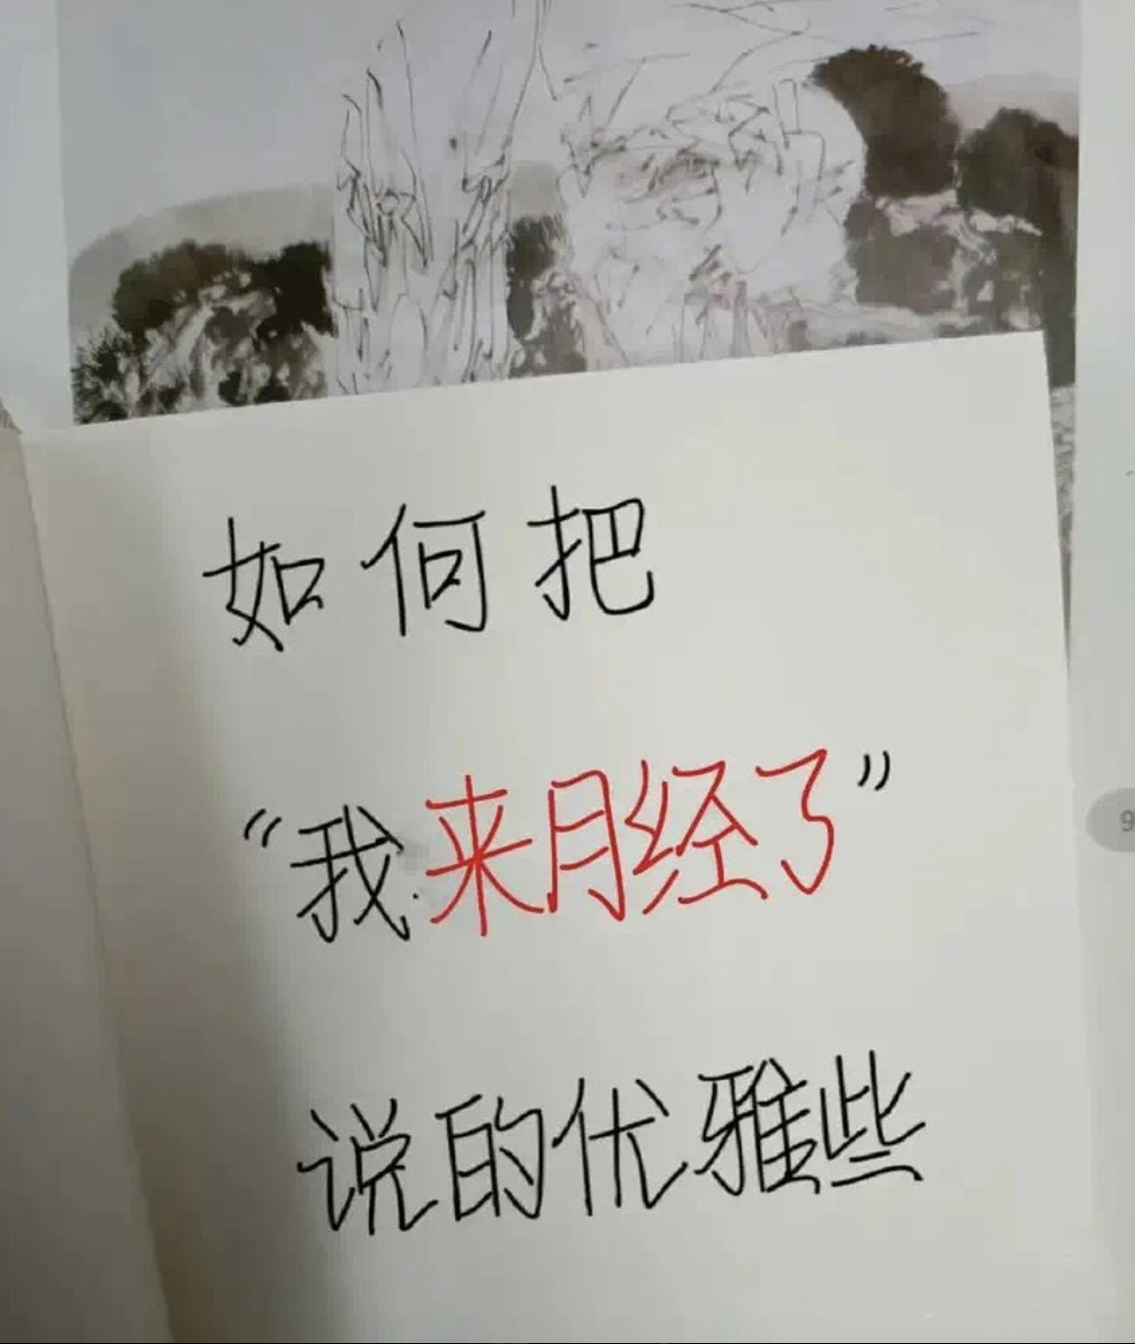 如何把
“我来月经了”
说的优雅些
9